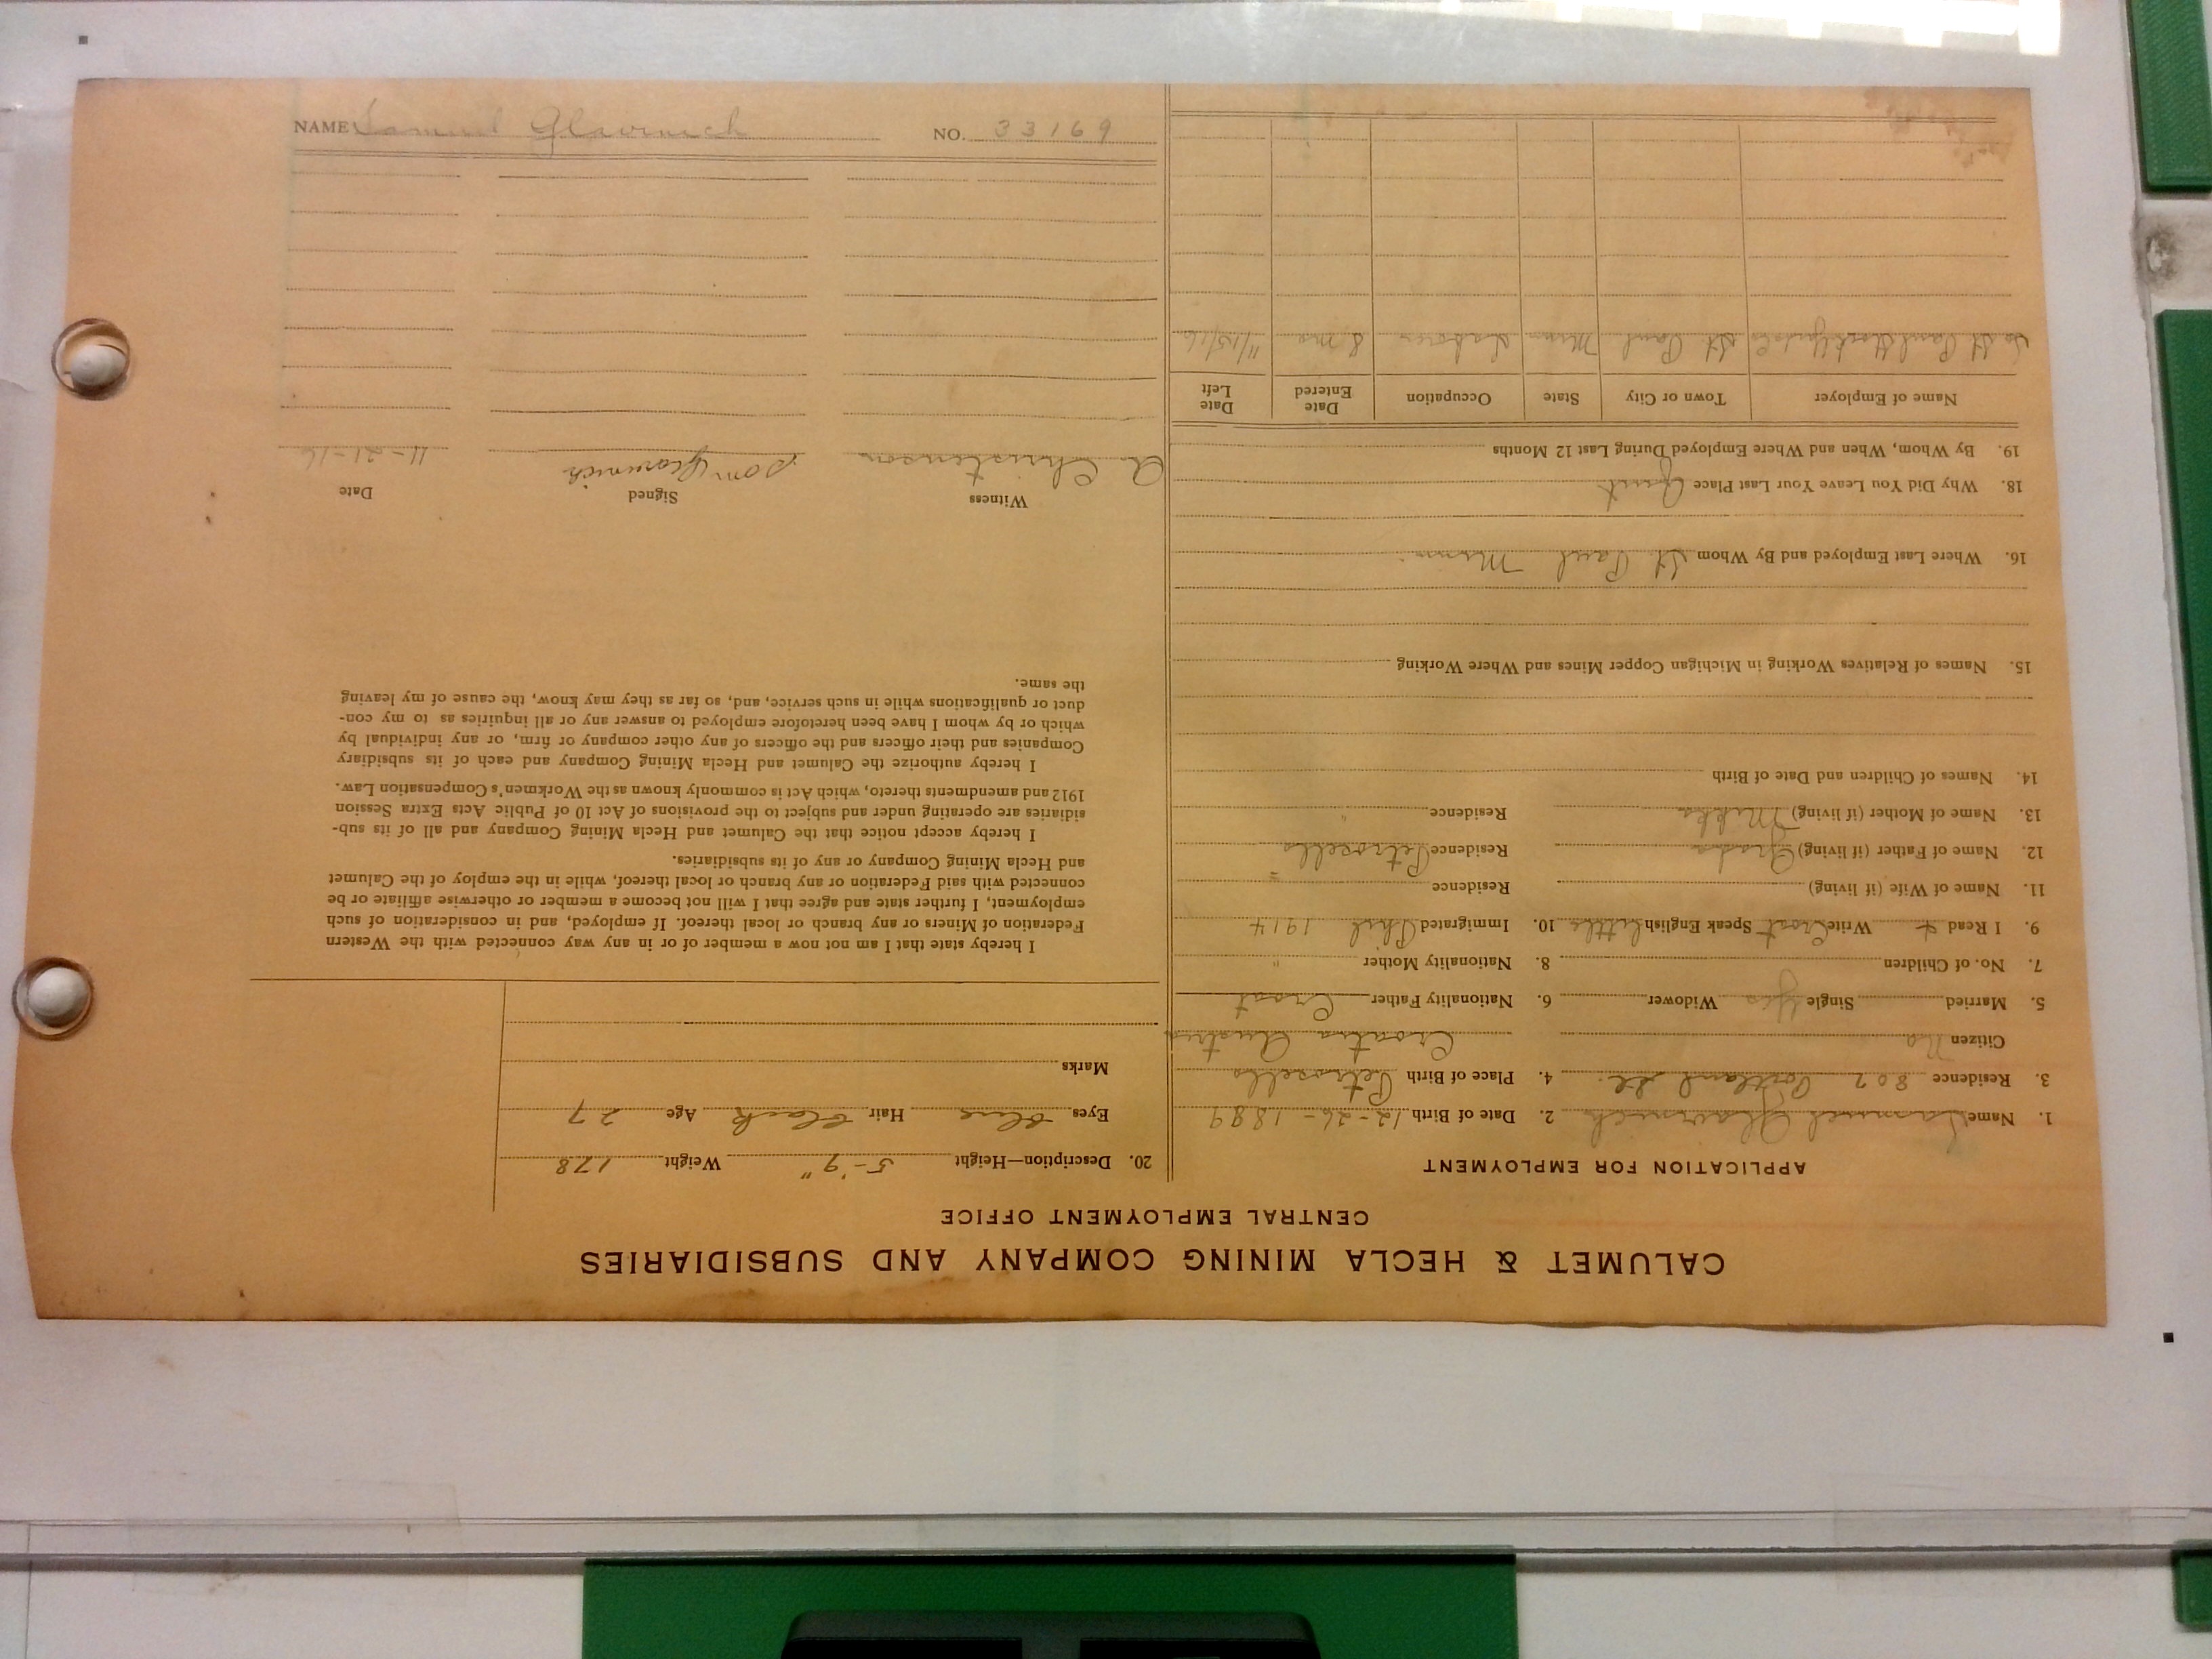 CALUMET & HECLA MINING COMPANY AND SUBSIDIARIES
CENTRAL EMPLOYMENT OFFICE
APPLICATION FOR EMPLOYMENT
1. Name Samuel Glavinich 2. Date of Birth 12-26-1889
3. Residence 807 Portland St. 4. Place of Birth Petrosello
Citizen No Croatia Austria
5. Married Single Yes Widower 6. Nationality Father Croat
7. No. of Children 8. Nationality Mother "
9. I Read & Write Croat Speak English little 10. Immigrated Phil 1914
11. Name of Wife (if living) Residence
12. Name of Father (if living) Residence Petrosello
13. Name of Mother (if living) Mikka Residence "
14. Names of Children and Date of Birth
15. Names of Relatives Working in Michigan Copper Mines and Where Working
16. Where Last Employed and By Whom St. Paul Minn.
18. Why Did You Leave Your Last Place Quit
19. By Whom, When and Where Employed During Last 12 Months
Name of Employer Town or City State Occupation Date Entered Date Left
So. St. Paul Stock Yards Co St. Paul Minn Laborer 8 mo 11/15/16
20. Description—Height 5-'9" Weight 178
Eyes blue Hair black Age 27
Marks
I hereby state that I am not now a member of or in any way connected with the Western
Federation of Miners or any branch or local thereof. If employed, and in consideration of such
employment, I further state and agree that I will not become a member or otherwise affiliate or be
connected with said Federation or any branch or local thereof, while in the employ of the Calumet
and Hecla Mining Company or any of its subsidiaries.
I hereby accept notice that the Calumet and Hecla Mining Company and all of its sub-
sidiaries are operating under and subject to the provisions of Act 10 of Public Acts Extra Session
1912 and amendments thereto, which Act is commonly known as the Workmen's Compensation Law.
I hereby authorize the Calumet and Hecla Mining Company and each of its subsidiary
Companies and their officers and the officers of any other company or firm, or any individual by
which or by whom I have been heretofore employed to answer any or all inquiries as to my con-
duct or qualifications while in such service, and, so far as they may know, the cause of my leaving
the same.
Witness Signed Date
A Christenson Som Glavinich 11-21-16
NAME Samuel Glavinich NO. 33169